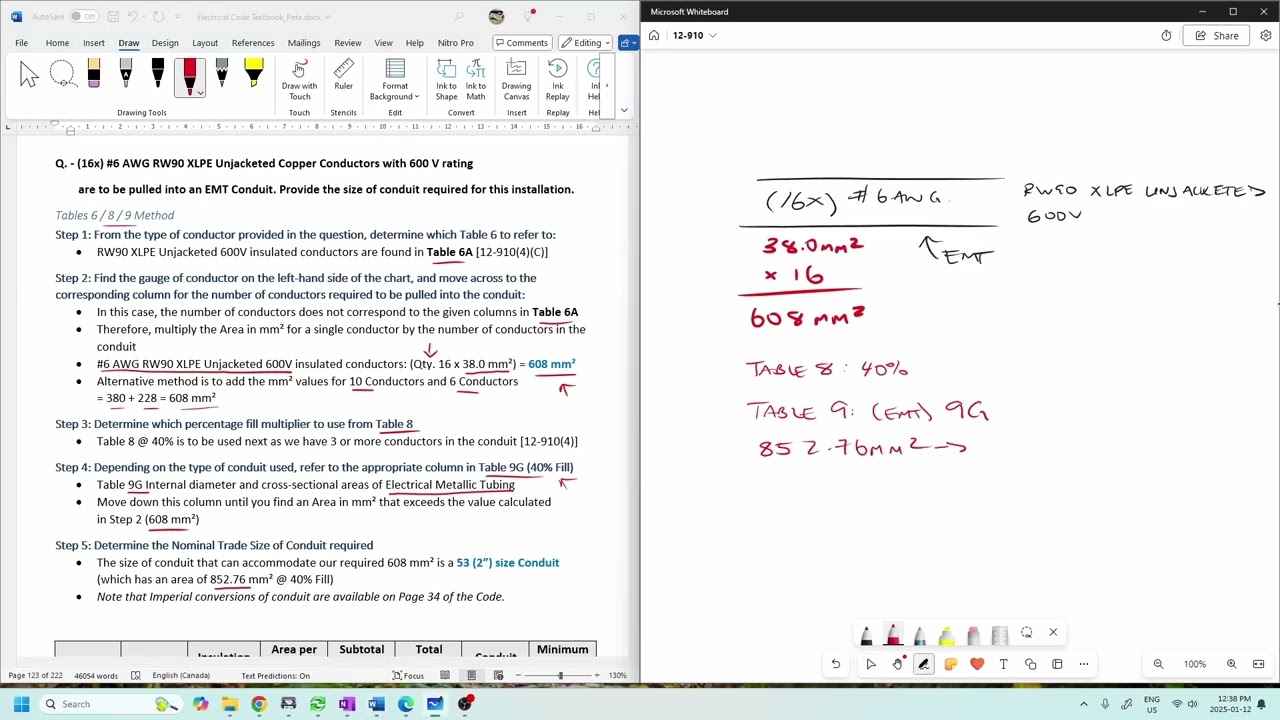 AutoSave Off Electrical Code Textbook_Pete.docx
File Home Insert Draw Design Layout References Mailings Review View Help Nitro Pro Comments Editing
Draw with Touch Ruler Format Background Ink to Shape Ink to Math Drawing Canvas Ink Replay Ink Hel
Touch Stencils Edit Convert Insert Replay Hel
Drawing Tools
1 2 3 4 5 6 7 8 9 10 11 12 13 14 15 16
Q. - (16x) #6 AWG RW90 XLPE Unjacketed Copper Conductors with 600 V rating
are to be pulled into an EMT Conduit. Provide the size of conduit required for this installation.
Tables 6 / 8 / 9 Method
Step 1: From the type of conductor provided in the question, determine which Table 6 to refer to:
• RW90 XLPE Unjacketed 600V insulated conductors are found in Table 6A [12-910(4)(C)]
Step 2: Find the gauge of conductor on the left-hand side of the chart, and move across to the
corresponding column for the number of conductors required to be pulled into the conduit:
• In this case, the number of conductors does not correspond to the given columns in Table 6A
• Therefore, multiply the Area in mm² for a single conductor by the number of conductors in the
conduit
• #6 AWG RW90 XLPE Unjacketed 600V insulated conductors: (Qty. 16 x 38.0 mm²) = 608 mm²
• Alternative method is to add the mm² values for 10 Conductors and 6 Conductors
= 380 + 228 = 608 mm²
Step 3: Determine which percentage fill multiplier to use from Table 8
• Table 8 @ 40% is to be used next as we have 3 or more conductors in the conduit [12-910(4)]
Step 4: Depending on the type of conduit used, refer to the appropriate column in Table 9G (40% Fill)
• Table 9G Internal diameter and cross-sectional areas of Electrical Metallic Tubing
• Move down this column until you find an Area in mm² that exceeds the value calculated
in Step 2 (608 mm²)
Step 5: Determine the Nominal Trade Size of Conduit required
• The size of conduit that can accommodate our required 608 mm² is a 53 (2”) size Conduit
(which has an area of 852.76 mm² @ 40% Fill)
• Note that Imperial conversions of conduit are available on Page 34 of the Code.
Insulation Area per Subtotal Total Conduit Minimum
Page 123 of 222 46054 words English (Canada) Text Predictions: On Focus 130%
Microsoft Whiteboard
12-910 Share
(16x) #6 AWG.
RW90 XLPE UNJACKETED
600V
EMT
38.0mm²
x 16
608 mm²
TABLE 8: 40%
TABLE 9: (EMT) 9G
852.76mm² →
100%
Search
ENG US 12:38 PM 2025-01-12